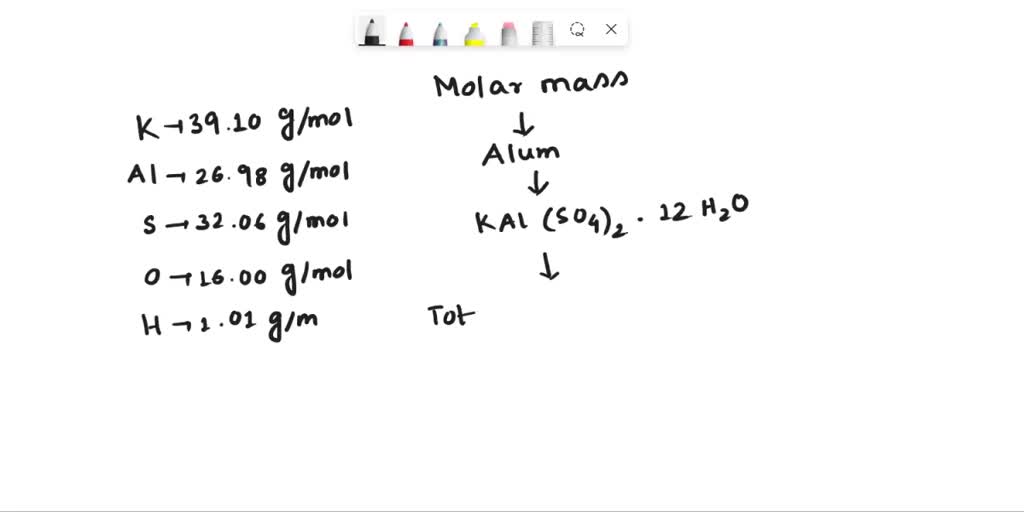 Molar mass
↓
Alum
↓
KAl (SO4)2 · 12 H2O
↓
Tot
K → 39.10 g/mol
Al → 26.98 g/mol
S → 32.06 g/mol
O → 16.00 g/mol
H → 1.01 g/m